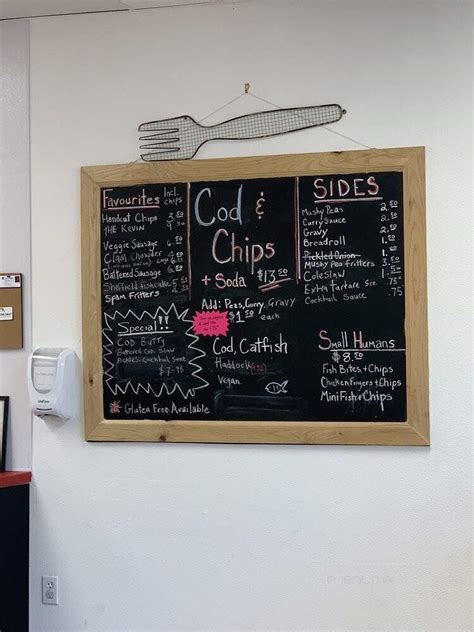 Favourites Incl. chips
Handcut Chips 3.50
THE KEVIN
Veggie Sausage
Clam Chowder
Battered Sausage
Sheffield fishcake
Spam Fritters
Special!!
COD BUTTY
Battered Cod, Slaw
Pickles, Cocktail Sauce
$7.75
Gluten Free Available
Cod &
Chips
+ Soda $13.50
Add: Peas, Curry, Gravy
$1.50 each
Cod, Catfish
Haddock
Vegan
SIDES
Mushy Peas
Curry Sauce
Gravy
Breadroll
Pickled Onion
Mushy Pea Fritters
Coleslaw
Extra Tartare Sce .75
Cocktail Sauce .75
Small Humans
$8.50
Fish Bites + Chips
Chicken Fingers + Chips
Mini Fish & Chips